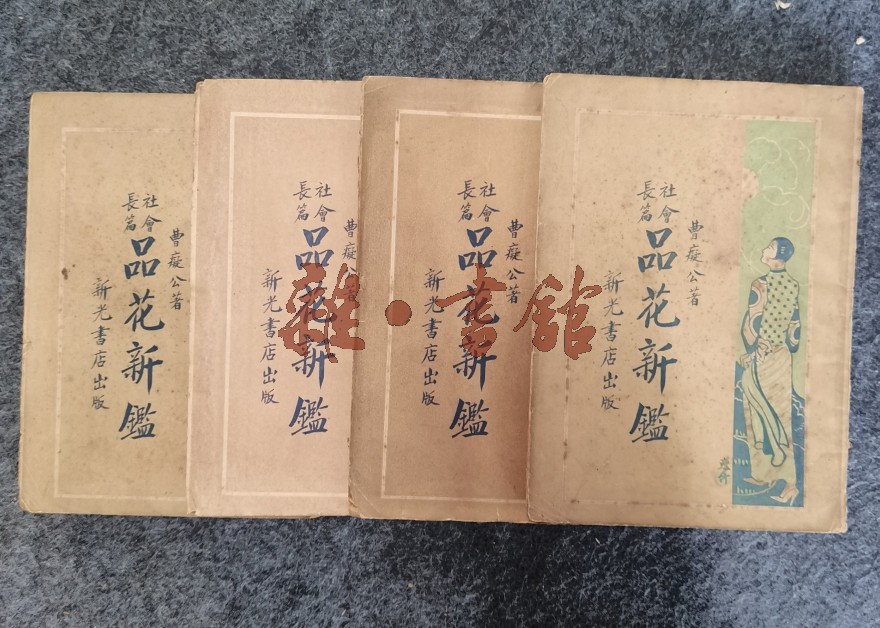 曹癡公著
社會
長篇
品花新鑑
新光書店出版
曹癡公著
社會
長篇
品花新鑑
新光書店出版
曹癡公著
社會
長篇
品花新鑑
新光書店出版
曹癡公著
社會
長篇
品花新鑑
新光書店出版
雜·書館